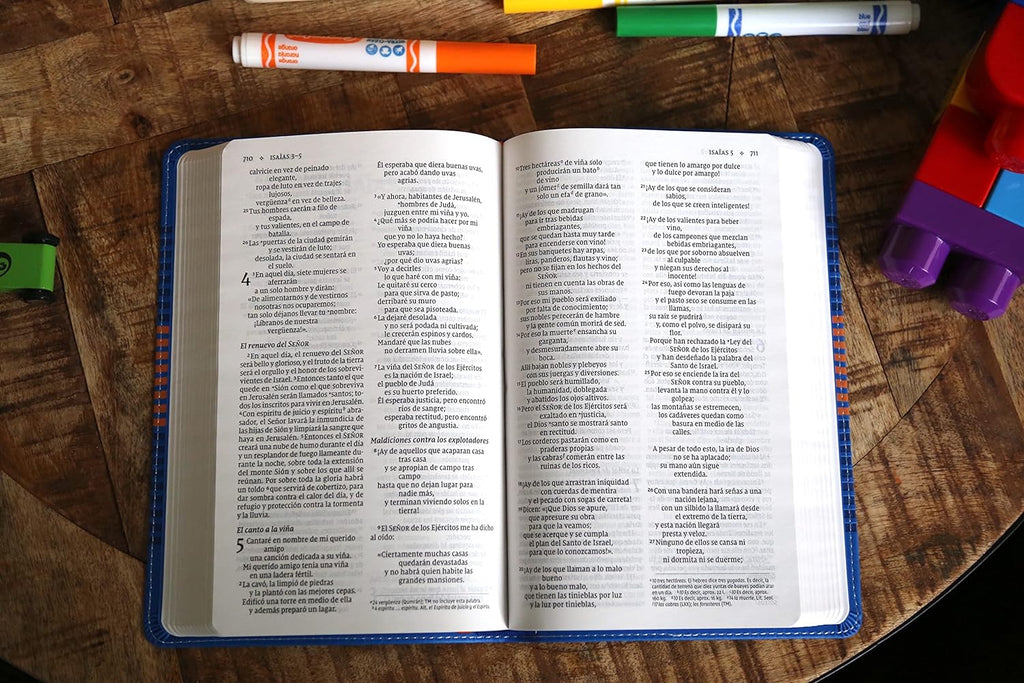 orange
naranja
orange
ULTRA-CLEAN
blue
azul
bleu
710 ✧ ISAÍAS 3–5
calvicie en vez de peinado
elegante,
ropa de luto en vez de trajes
lujosos,
vergüenza en vez de belleza.
25 Tus hombres caerán a filo de
espada,
y tus valientes, en el campo de
batalla.
26 Las °puertas de la ciudad gemirán
y se vestirán de luto;
desolada, la ciudad se sentará en
el suelo.
4 1 En aquel día, siete mujeres se
aferrarán
a un solo hombre y dirán:
«De alimentarnos y de vestirnos
nosotras nos ocuparemos;
tan solo déjanos llevar tu °nombre:
¡Líbranos de nuestra
vergüenza!».
El renuevo del SEÑOR
2 En aquel día, el renuevo del SEÑOR
será bello y glorioso, y el fruto de la tierra
será el orgullo y el honor de los sobrevi-
vientes de Israel. 3 Entonces tanto el que
quede en °Sión como el que sobreviva
en Jerusalén serán llamados °santos; to-
dos los inscritos para vivir en Jerusalén.
4 Con espíritu de juicio y espíritu b abra-
sador, el Señor lavará la inmundicia de
las hijas de Sión y limpiará la sangre que
haya en Jerusalén. 5 Entonces el SEÑOR
creará una nube de humo durante el día
y un resplandor de fuego llameante du-
rante la noche, sobre toda la extensión
del monte Sión y sobre los que allí se
reúnan. Por sobre toda la gloria habrá
un toldo 6 que servirá de cobertizo, para
dar sombra contra el calor del día, y de
refugio y protección contra la tormenta
y la lluvia.
El canto a la viña
5 Cantaré en nombre de mi querido
amigo
una canción dedicada a su viña.
Mi querido amigo tenía una viña
en una ladera fértil.
2 La cavó, la limpió de piedras
y la plantó con las mejores cepas.
Edificó una torre en medio de ella
y además preparó un lagar.
Él esperaba que diera buenas uvas,
pero acabó dando uvas
agrias.
3 «Y ahora, habitantes de Jerusalén,
°hombres de Judá,
juzguen entre mi viña y yo.
4 ¿Qué más se podría hacer por mi
viña
que yo no lo haya hecho?
Yo esperaba que diera buenas
uvas;
¿por qué dio uvas agrias?
5 Voy a decirles
lo que haré con mi viña:
Le quitaré su cerco
para que sirva de pasto;
derribaré su muro
para que sea pisoteada.
6 La dejaré desolada
y no será podada ni cultivada;
le crecerán espinos y cardos.
Mandaré que las nubes
no derramen lluvia sobre ella».
7 La viña del SEÑOR de los Ejércitos
es la nación de Israel;
el pueblo de Judá
es su huerto preferido.
Él esperaba justicia, pero encontró
ríos de sangre;
esperaba rectitud, pero encontró
gritos de angustia.
Maldiciones contra los explotadores
8 ¡Ay de aquellos que acaparan casa
tras casa
y se apropian de campo tras
campo
hasta que no dejan lugar para
nadie más,
y terminan viviendo solos en la
tierra!
9 El SEÑOR de los Ejércitos me ha dicho
al oído:
«Ciertamente muchas casas
quedarán devastadas
y no habrá quien habite las
grandes mansiones.
a 24 vergüenza (Qumrán); TM no incluye esta palabra.
b 4 espíritu … espíritu. Alt. el Espíritu de juicio y el Espíritu
ISAÍAS 5 ✧ 711
10 Tres hectáreas a de viña solo
producirán un bato b
de vino
y un jómer c de semilla dará tan
solo un efa d de grano».
11 ¡Ay de los que madrugan
para ir tras bebidas
embriagantes,
que se quedan hasta muy tarde
para encenderse con vino!
12 En sus banquetes hay arpas,
liras, panderos, flautas y vino;
pero no se fijan en los hechos del
SEÑOR
ni tienen en cuenta las obras de
sus manos.
13 Por eso mi pueblo será exiliado
por falta de conocimiento;
sus nobles perecerán de hambre
y la gente común morirá de sed.
14 Por eso la muerte e ensancha su
garganta,
y desmesuradamente abre su
boca.
Allí bajan nobles y plebeyos
con sus juergas y diversiones.
15 El pueblo será humillado,
la humanidad, doblegada
y abatidos los ojos altivos.
16 Pero el SEÑOR de los Ejércitos será
exaltado en °justicia,
el Dios °santo se mostrará santo
en rectitud.
17 Los corderos pastarán como en
praderas propias
y las cabras f comerán entre las
ruinas de los ricos.
18 ¡Ay de los que arrastran iniquidad
con cuerdas de mentira
y el pecado con sogas de carreta!
19 Dicen: «¡Que Dios se apure,
que apresure su obra
para que la veamos;
que se acerque y se cumpla
el plan del Santo de Israel,
para que lo conozcamos!».
20 ¡Ay de los que llaman a lo malo
bueno
y a lo bueno malo,
que tienen las tinieblas por luz
y la luz por tinieblas,
que tienen lo amargo por dulce
y lo dulce por amargo!
21 ¡Ay de los que se consideran
sabios,
de los que se creen inteligentes!
22 ¡Ay de los valientes para beber
vino,
de los campeones que mezclan
bebidas embriagantes,
23 de los que por soborno absuelven
al culpable
y niegan sus derechos al
inocente!
24 Por eso, así como las lenguas de
fuego devoran la paja
y el pasto seco se consume en las
llamas,
su raíz se pudrirá
y, como el polvo, se disipará su
flor.
Porque han rechazado la °Ley del
SEÑOR de los Ejércitos
y han desdeñado la palabra del
Santo de Israel.
25 Por eso se enciende la ira del
SEÑOR contra su pueblo,
levanta la mano contra él y lo
golpea;
las montañas se estremecen,
los cadáveres quedan como
basura en medio de las
calles.
A pesar de todo esto, la ira de Dios
no se ha aplacado;
su mano aún sigue
extendida.
26 Con una bandera hará señas a una
nación lejana,
con un silbido la llamará desde
el extremo de la tierra,
y esta nación llegará
presta y veloz.
27 Ninguno de ellos se cansa ni
tropieza,
ni dormita ni se duerme;
a 10 tres hectáreas. El hebreo dice tres yugadas. Es decir, la
cantidad de terreno que diez yuntas de bueyes podían arar
en un día. b 10 Es decir, aprox. 22 l. c 10 Es decir, aprox.
160 kg. d 10 Es decir, aprox. 16 kg. e 14 la muerte. Lit. Seol.
f 17 las cabras (LXX); los forasteros (TM).